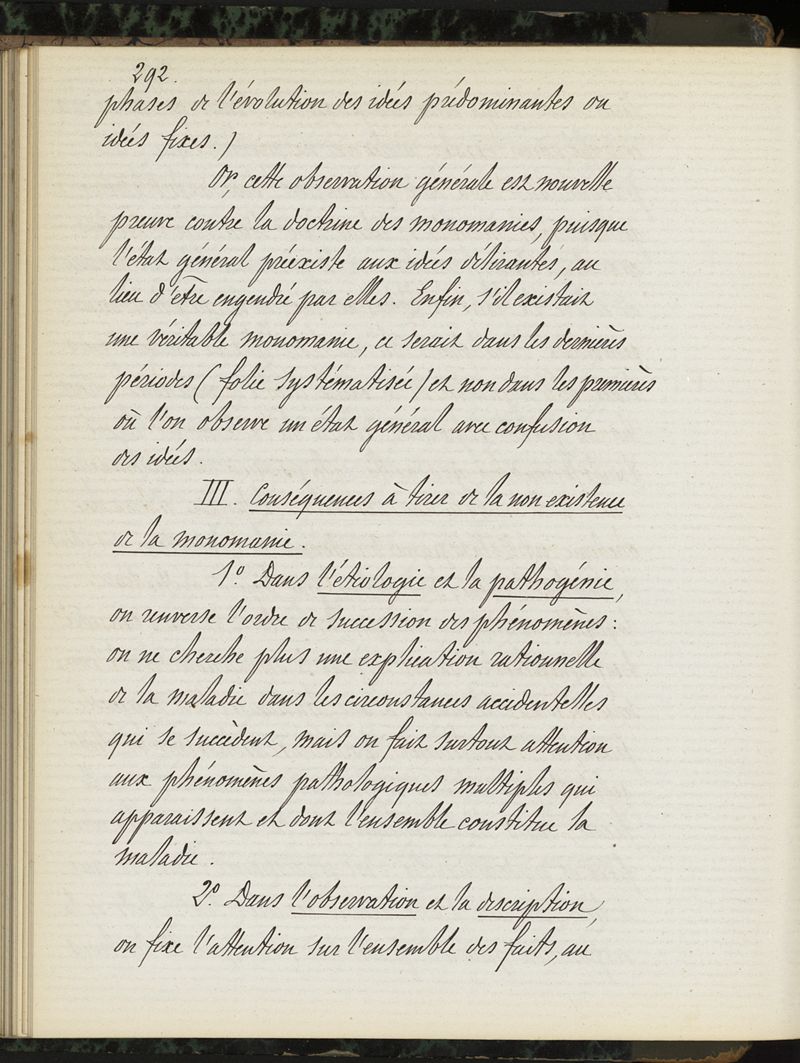 292.
phases de l'évolution des idées prédominantes ou
idées fixes.)
Or, cette observation générale est nouvelle
preuve contre la doctrine des monomanies, puisque
l'état général préexiste aux idées délirantes, au
lieu d'être engendré par elles. Enfin, s'il existait
une véritable monomanie, ce serait dans les dernières
périodes (folie systématisée) et non dans les premières
où l'on observe un état général avec confusion
des idées.
III. Conséquences à tirer de la non existence
de la monomanie.
1º. Dans l'étiologie et la pathogénie,
on renverse l'ordre de succession des phénomènes :
on ne cherche plus une explication rationnelle
de la maladie dans les circonstances accidentelles
qui se succèdent, mais on fait surtout attention
aux phénomènes pathologiques multiples qui
apparaissent et dont l'ensemble constitue la
maladie.
2º. Dans l'observation et la description,
on fixe l'attention sur l'ensemble des faits, au